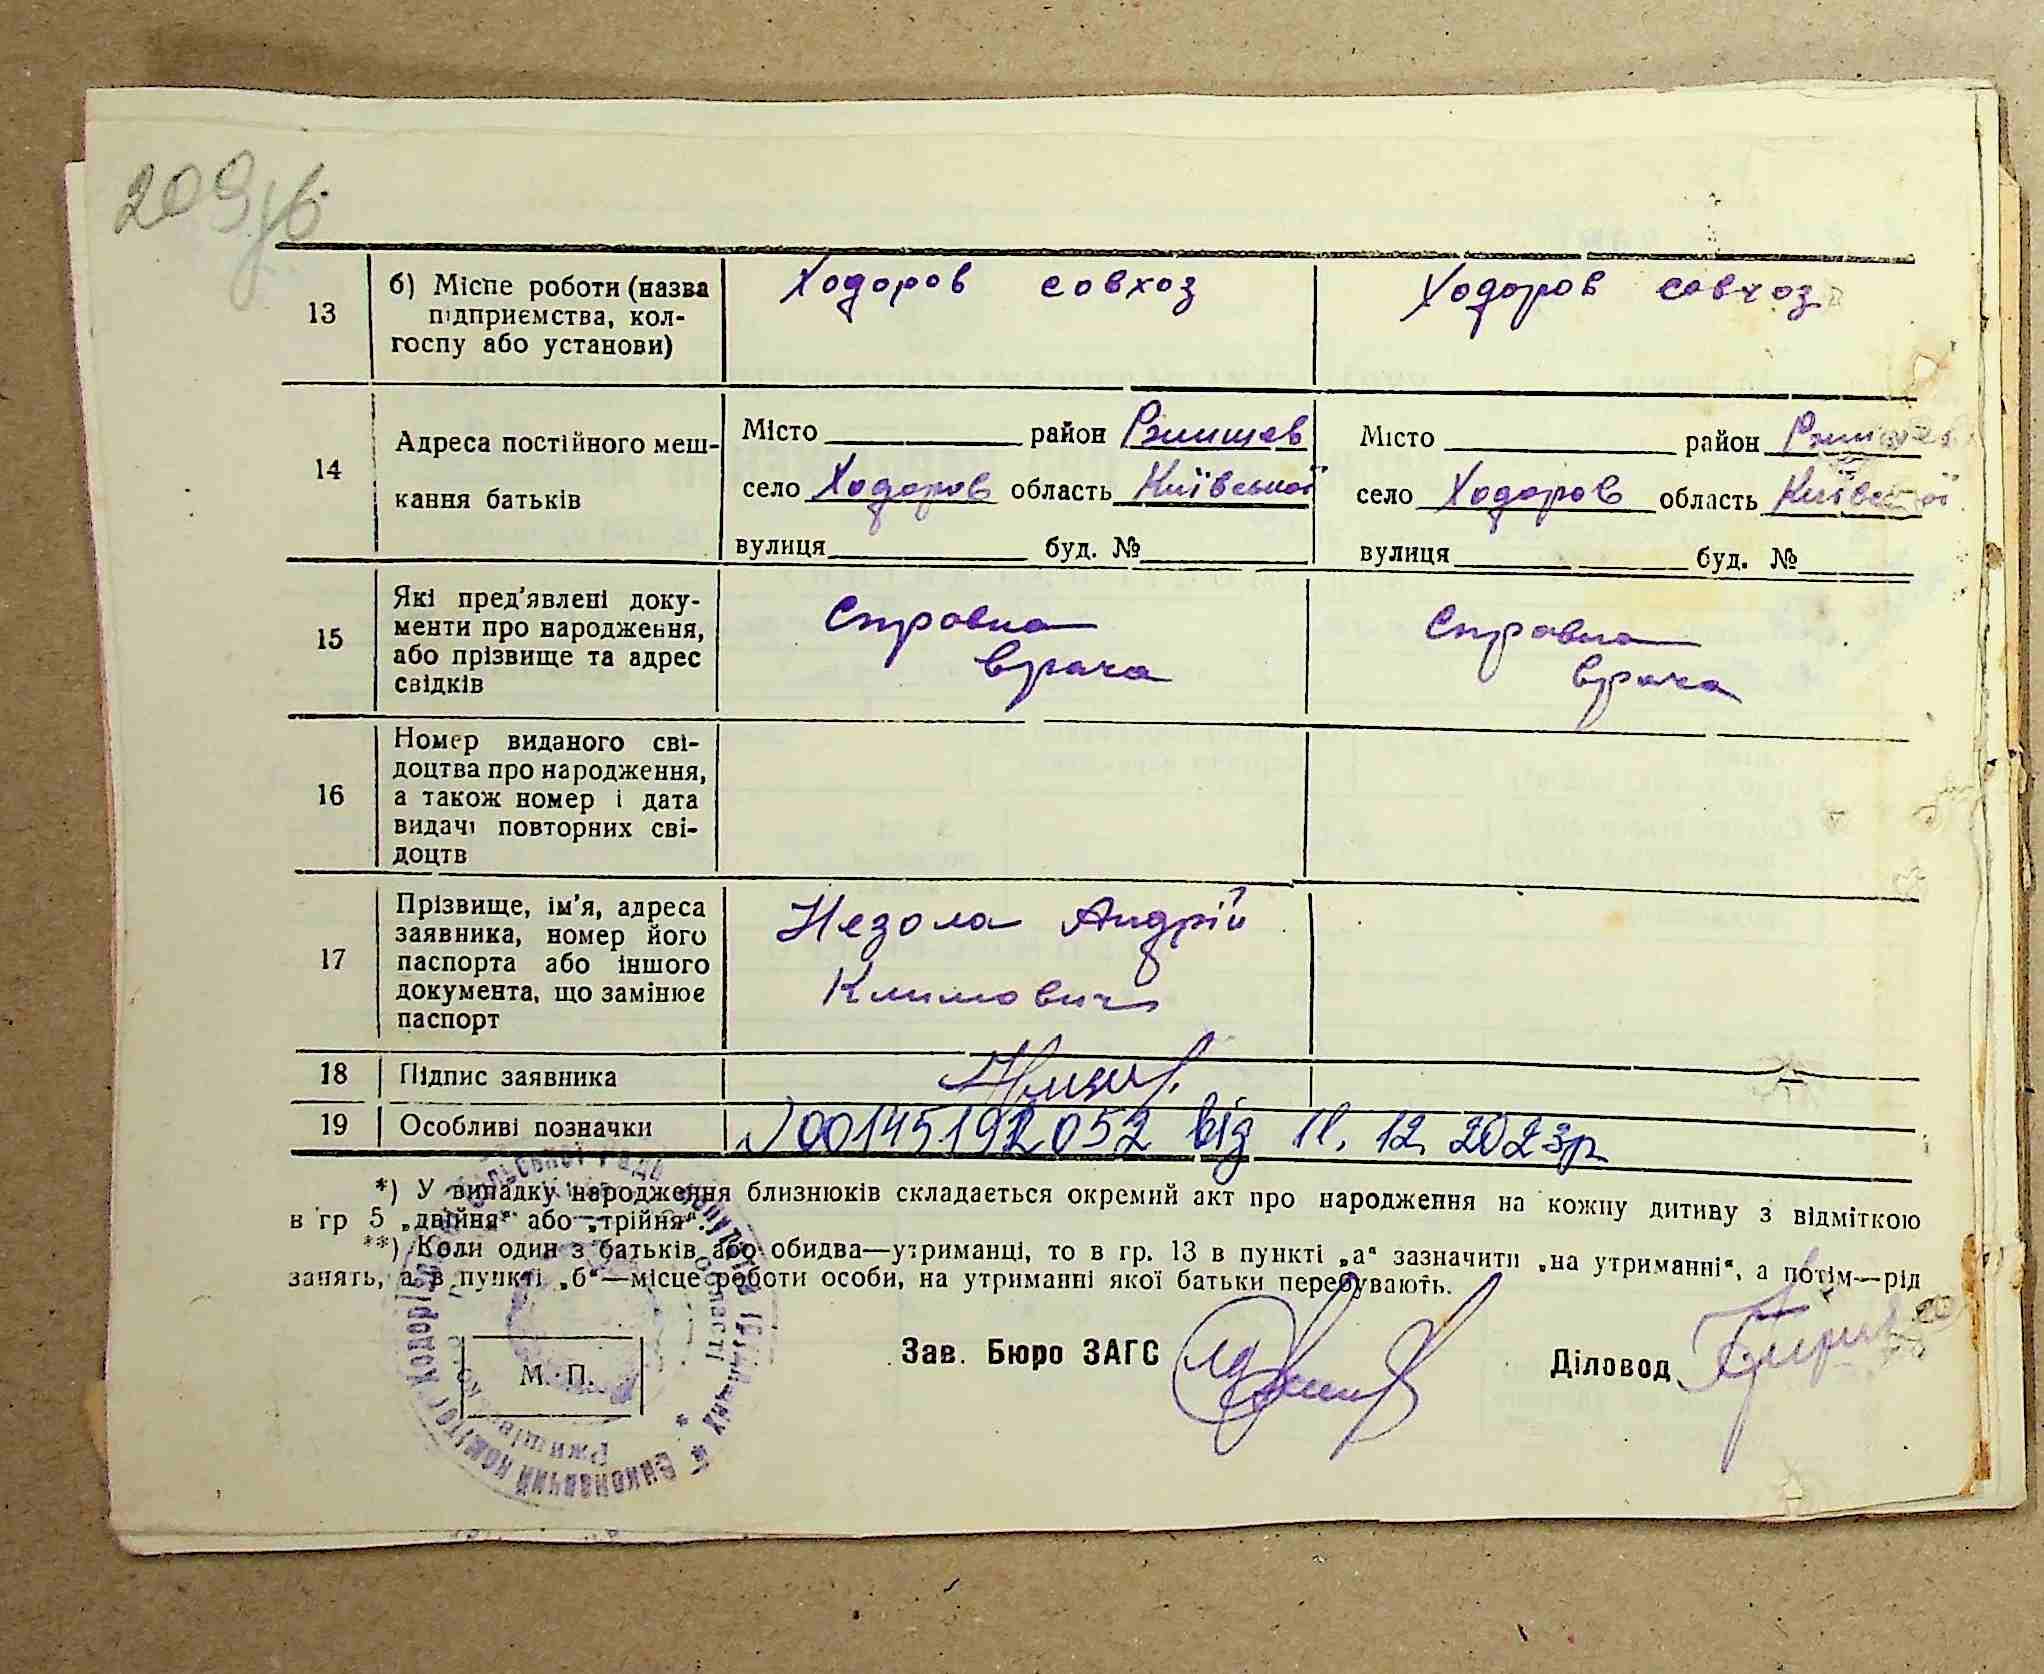 209зв
13
б) Місце роботи (назва
підприємства, кол-
госпу або установи)
Ходоров совхоз
Ходоров совхоз
14
Адреса постійного меш-
кання батьків
Місто район Ржищев
село Ходоров область Київської
вулиця буд. №
Місто район Ржищев
село Ходоров область Київської
вулиця буд. №
15
Які пред'явлені доку-
менти про народження,
або прізвище та адрес
свідків
Справка
врача
Справка
врача
16
Номер виданого сві-
доцтва про народження,
а також номер і дата
видачі повторних сві-
доцтв
17
Прізвище, ім'я, адреса
заявника, номер його
паспорта або іншого
документа, що замінює
паспорт
Незола Андрій
Климович
18
Підпис заявника
19
Особливі позначки
00145192052 від 11. 12. 2023р
*) У випадку народження близнюків складається окремий акт про народження на кожну дитину з відміткою
в гр 5 „двійня“ або „трійня“.
**) Коли один з батьків або обидва—утриманці, то в гр. 13 в пункті „а“ зазначити „на утриманні“, а потім—рід
занять, а в пункті „б“—місце роботи особи, на утриманні якої батьки перебувають.
Зав. Бюро ЗАГС
Діловод
М. П.
Виконавчий комітет Ходорівської сільської Ради депутатів трудящих